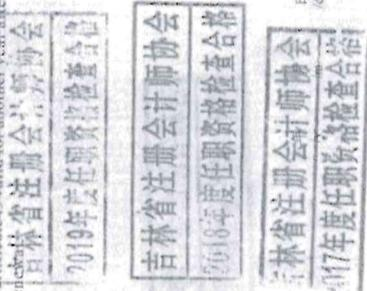 吉林省注册会计师协会
2019年度任职资格检查合格
吉林省注册会计师协会
2018年度任职资格检查合格
吉林省注册会计师协会
2017年度任职资格检查合格